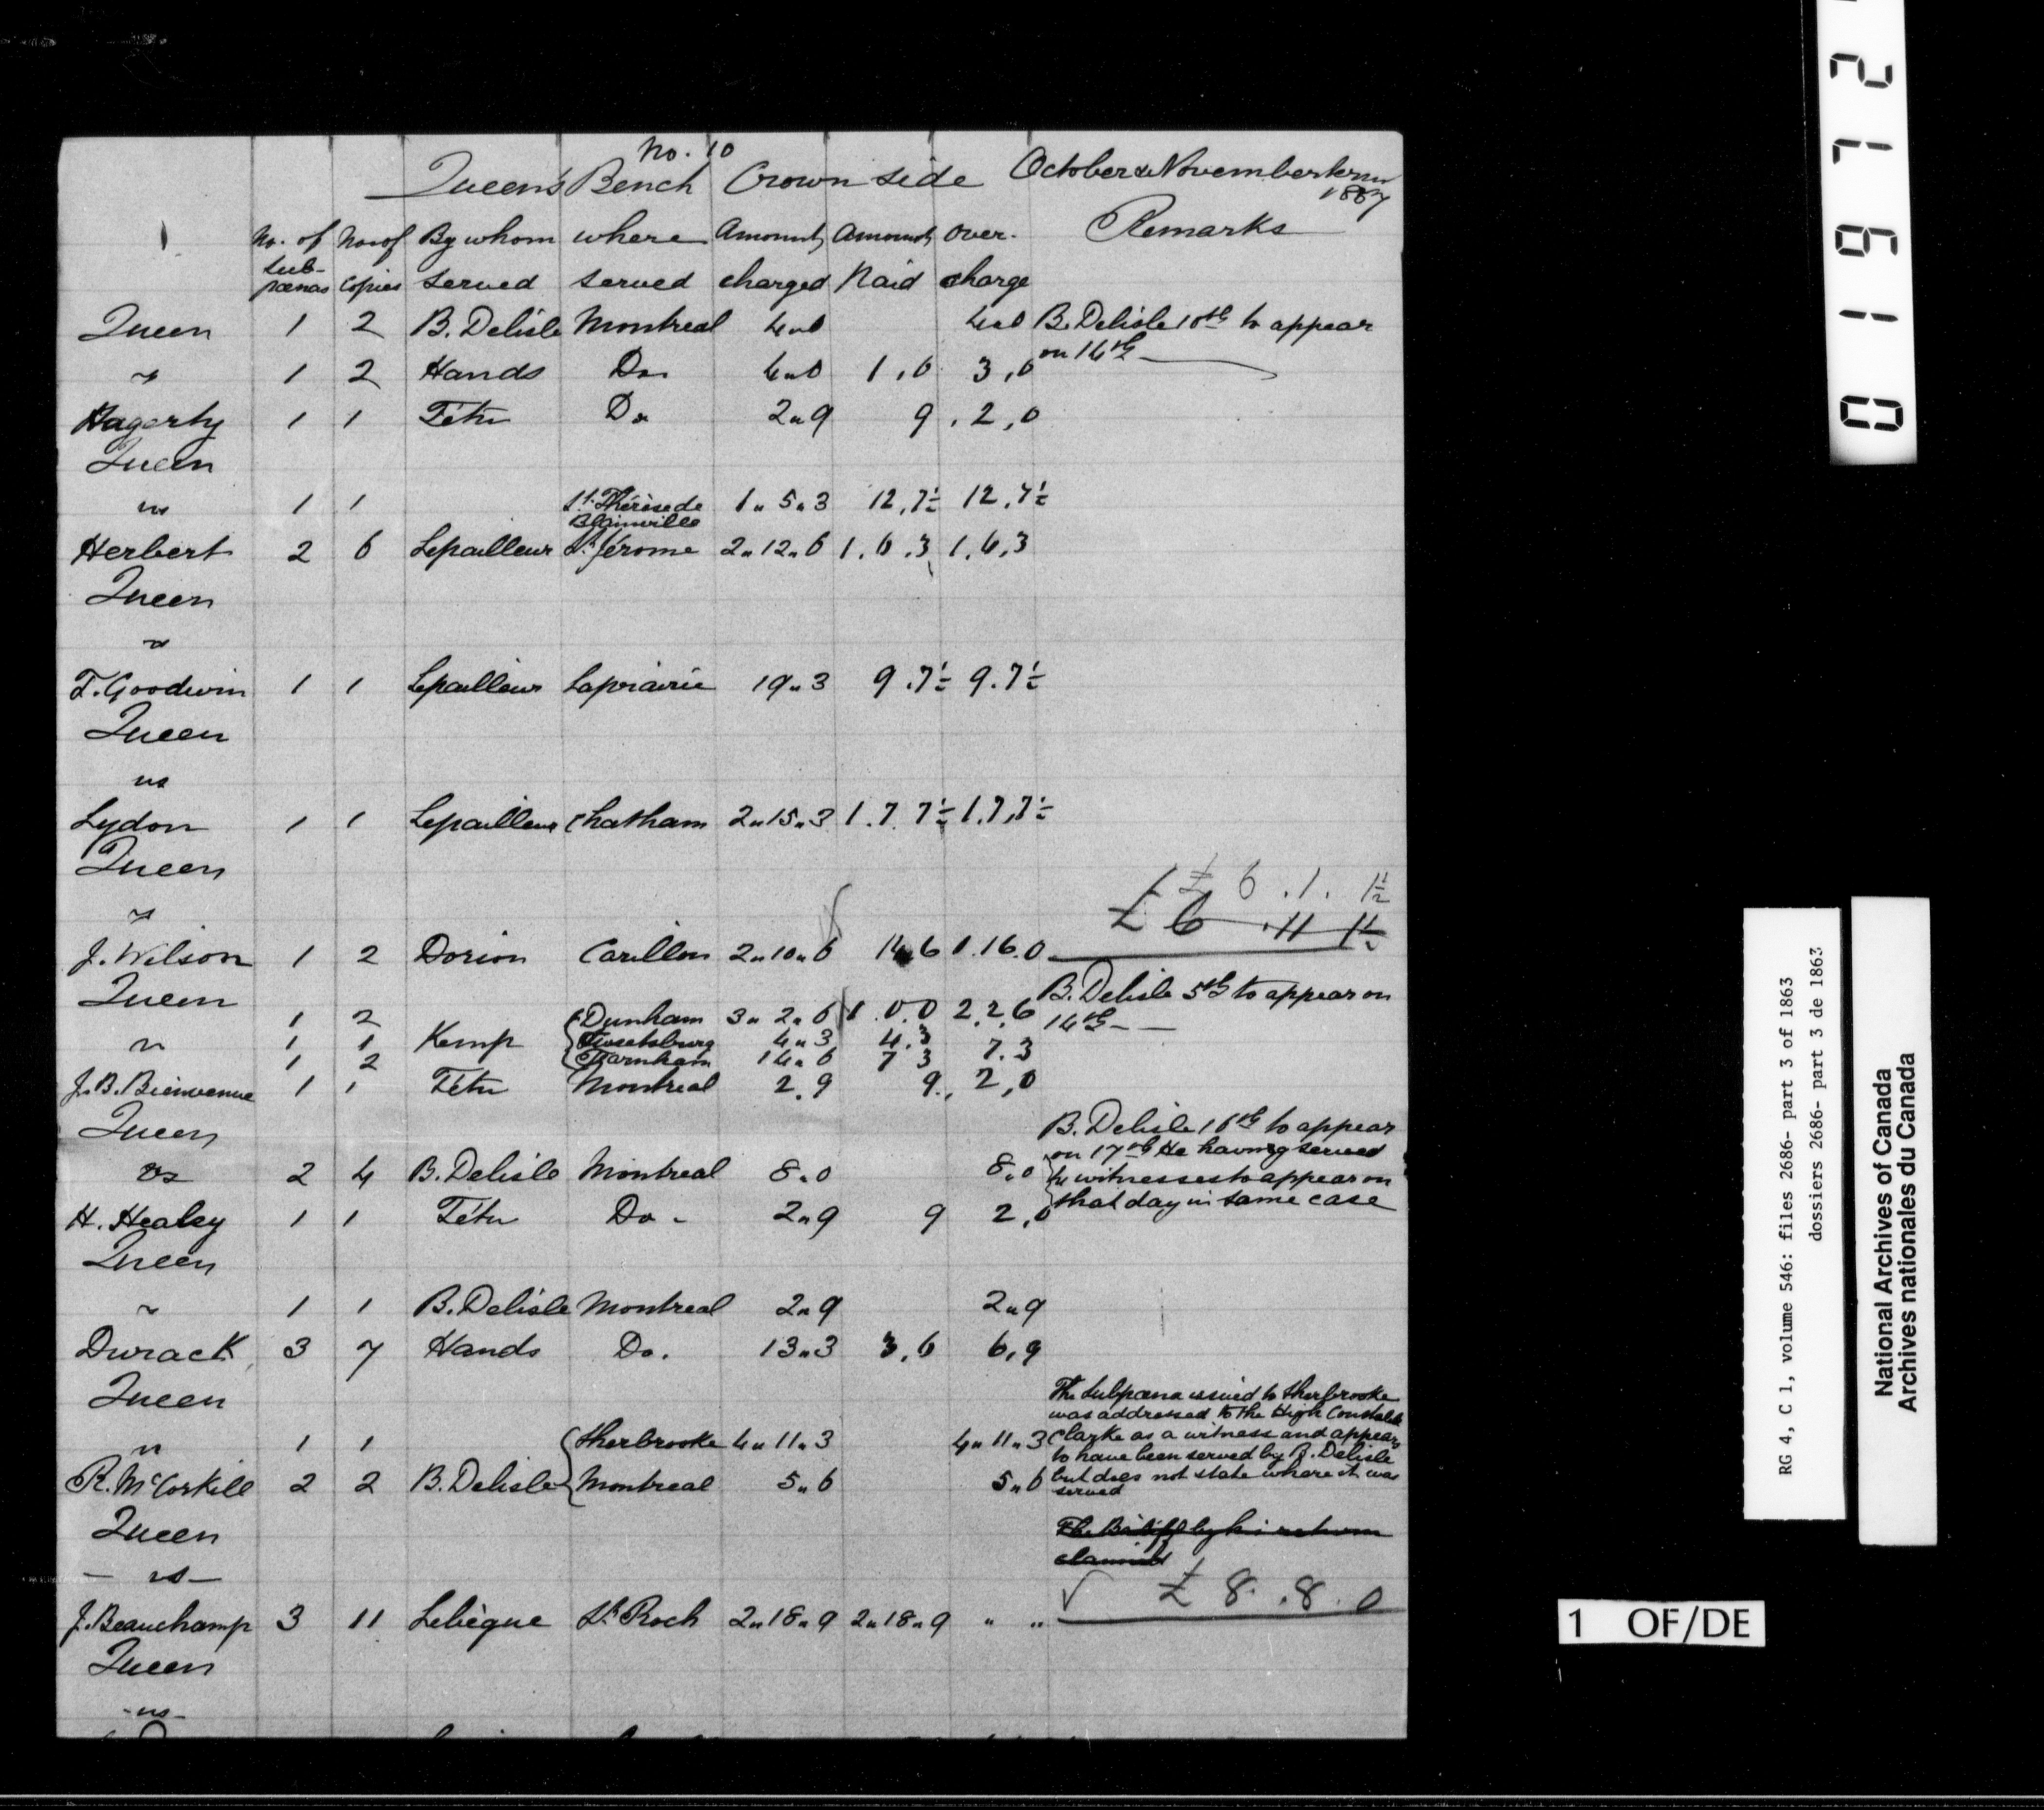 No. 10
Queen's Bench Crown side October & November term
1857
No. of No of By whom where Amount Amount Over- Remarks
sub-
pœnas copies served served charged Paid charge
Queen 1 2 B. Delisle Montreal 4„0 4„0 B. Delisle 10th to appear
on 14th
vs 1 2 Hands Do. 4„0 1,0 3,0
Hagerty 1 1 Tétu Do 2„9 9 2,0
Queen
vs 1 1 St. Thérèse de 1„5„3 12,7½ 12,7½
Blainville
Herbert 2 6 Lepailleur St. Jérome 2„12„6 1.6.3 1.6,3
Queen
vs
T. Goodwin 1 1 Lepailleur Laprairie 19„3 9.7½ 9.7½
Queen
vs
Lydon 1 1 Lepailleur Chatham 2„15„3 1.7.7½ 1.7,7½
Queen
£ 6.1.1½
vs £ 6.11 1½
J. Wilson 1 2 Dorion Carillon 2„10„6 14„6 1.16.0
Queen B. Delisle 5th to appear on
1 2 Dunham 3„2„6 1.0.0 2.2.6 14th
vs 1 1 Kemp 4„3 4.3
1 2 Farnham 14„6 7 3 7.3
J. B. Bienvenue 1 1 Tétu Montreal 2.9 9 2,0
Queen B. Delisle 16th to appear
on 17th He having served
vs 2 4 B. Delisle Montreal 8.0 8.0 witnesses to appear on
that day in same case
H. Healey 1 1 Tétu Do. 2„9 9 2,0
Queen
vs 1 1 B. Delisle Montreal 2„9 2„9
Durack 3 7 Hands Do. 13„3 3,6 6,9
Queen The Subpœna issued to Sherbrooke
was addressed to the High Constable
vs 1 1 Sherbrooke 4„11„3 4„11„3 Clarke as a witness and appears
to have been served by B. Delisle
R. McCorkill 2 2 B. Delisle Montreal 5„6 5„6 but does not state where it was
served
Queen The Bailiff by his return
claimed
vs £ 8.8.0
J. Beauchamp 3 11 Lebègue St. Roch 2„18„9 2„18„9 „ „
Queen
vs
21610
RG 4, C 1, volume 546: files 2686- part 3 of 1863
dossiers 2686- part 3 de 1863
National Archives of Canada
Archives nationales du Canada
1 OF/DE